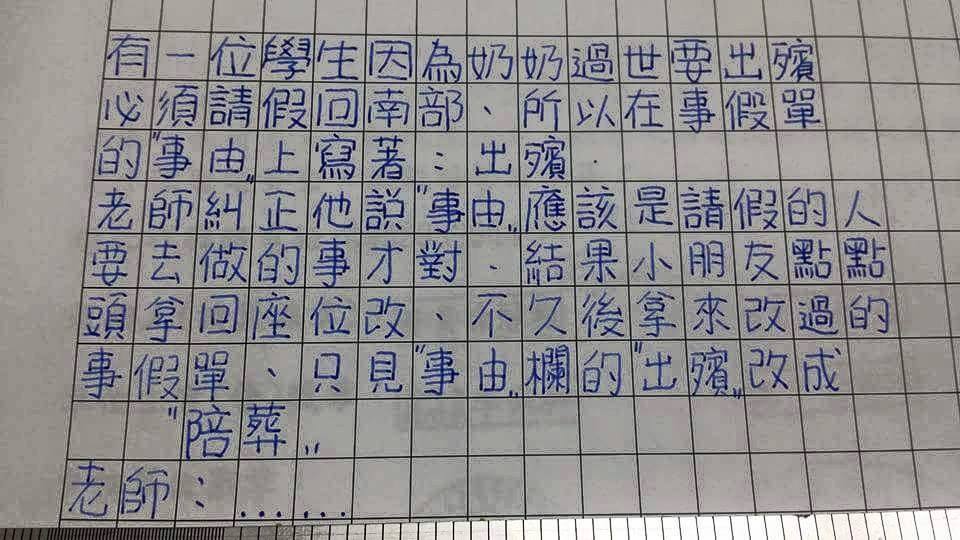 有一位學生因為奶奶過世要出殯
必須請假回南部、所以在事假單
的"事由„上寫著：出殯.
老師糾正他說"事由„應該是請假的人
要去做的事才對．結果小朋友點點
頭拿回座位改、不久後拿來改過的
事假單、只見"事由„欄的"出殯„改成
"陪葬„
老師：……